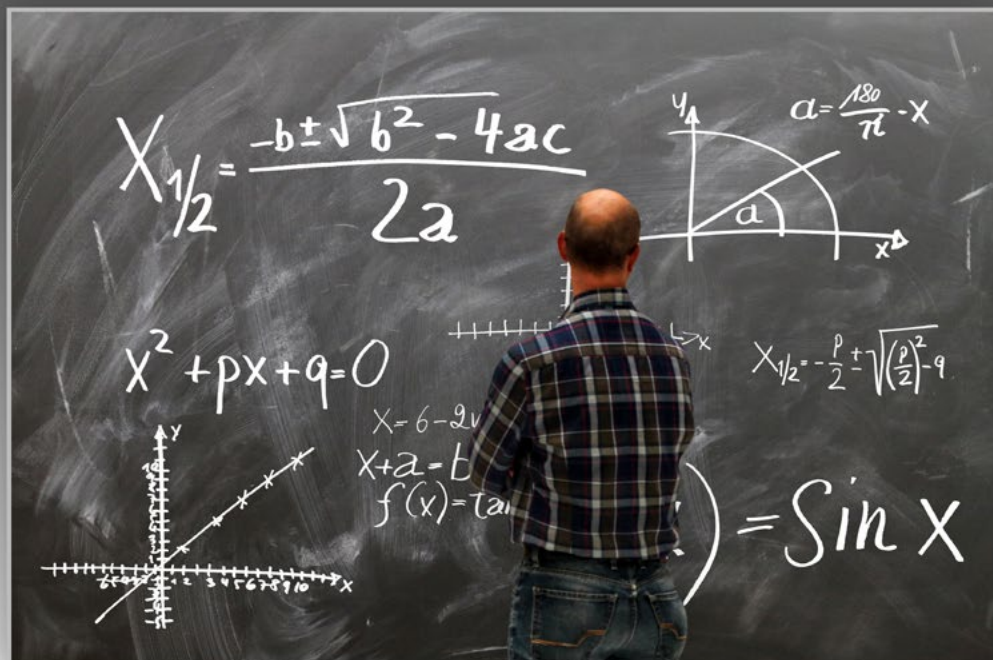 X1/2 = -b ± √b² - 4ac / 2a
y
a = 180/π - X
a
x
x
X² + px + q = 0
X1/2 = -p/2 ± √(p/2)² - q
X = 6 - 2
X + a = b
f(x) = tan
) = Sin X
y
10
1 2 3 4 5 6 7 8 9 10
x